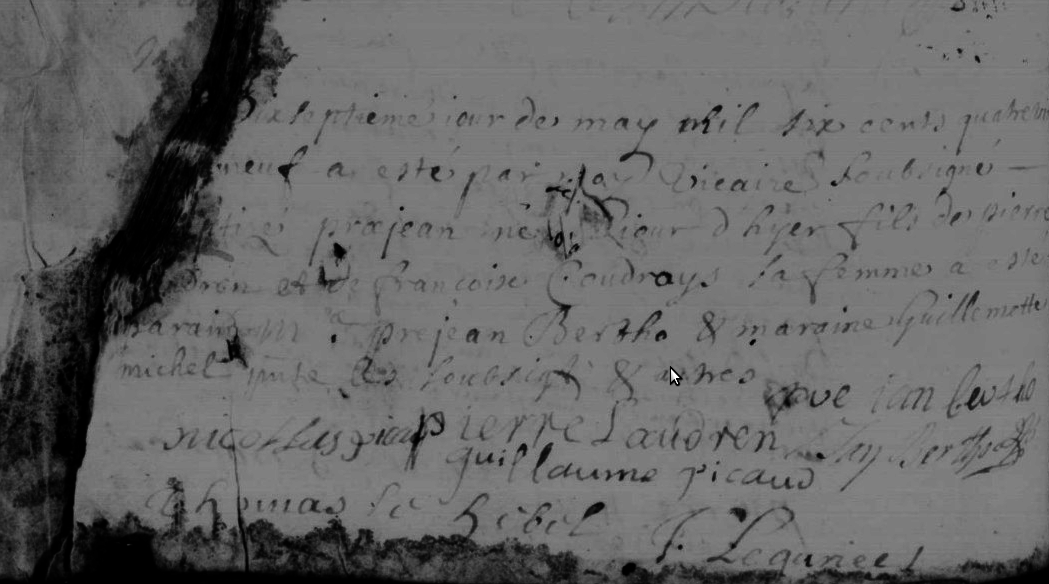 Dixseptieme iour de may mil six cents quatre
neuf a esté par moy Vicaire soubsigné
prejean né le iour d hyer fils de pierre
dren et de francoise Coudrays sa femme a esté
parain prejean Bertho & maraine Guillemette
michel les soubsigt & autres
ian bertho
nicollas pierre Laudren Jan Bertho
guillaume picaud
Thomas le hebel